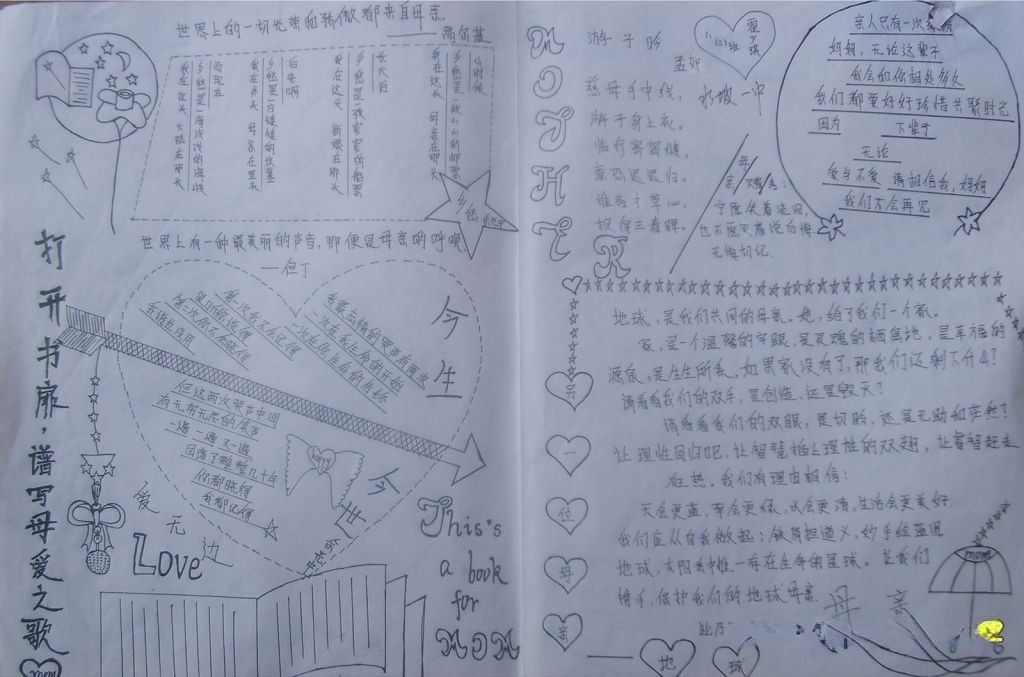 世界上的一切光荣和骄傲都来自母亲
——高尔基
小时候
乡愁是一枚小小的邮票
我在这头 母亲在那头
长大后
乡愁是一张窄窄的船票
我在这头 新娘在那头
后来啊
乡愁是一方矮矮的坟墓
我在外头 母亲在里头
而现在
乡愁是一湾浅浅的海峡
我在这头 大陆在那头
乡愁
世界上有一种最美丽的声音,那便是母亲的呼唤
——但丁
打开书扉,谱写母爱之歌
mom
今生今世
余光中
我最忘情的哭声有两次
一次在我生命的开始
一次在你生命的告终
第一次我不会记得
是听你说的
第二次你不会晓得
我说也没用
但这两次哭声中间
有无穷无尽的笑声
一遍一遍又一遍
回荡了整整几十年
你都晓得
我都记得
爱无边
Love
This's
a book
for
MOM
MOTHER
游子吟
孟郊
慈母手中线,
游子身上衣。
临行密密缝,
意恐迟迟归。
谁言寸草心,
报得三春晖。
水坡一中
母亲
宁愿笑着流泪,
也不愿哭着说后悔
无悔切记。
亲人只有一次
妈妈,无论这辈子
我会和你相处多久
我们都要好好珍惜共聚时光
因为 下辈子
无论
爱与不爱 请相信我,妈妈
我们不会再见
另一位母亲
——地球
地球,是我们共同的母亲。她,给了我们一个家。
家,是一个温馨的字眼,是灵魂的栖息地,是幸福的
源泉,是生生所系。如果家没有了,那我们还剩下什么?
请看看我们的双手,是创造,还是毁灭?
请看看我们的双眼,是切盼,还是无助和茫然?
让理性回归吧,让智慧插上理性的双翅,让睿智赶走
狂热。我们有理由相信:
天会更蓝,草会更绿,水会更清,生活会更美好.
我们应从自我做起:铁肩担道义,妙手绘蓝图
地球,太阳系中惟一存在生命的星球。让我们
携手,保护我们的地球母亲
母亲
mom